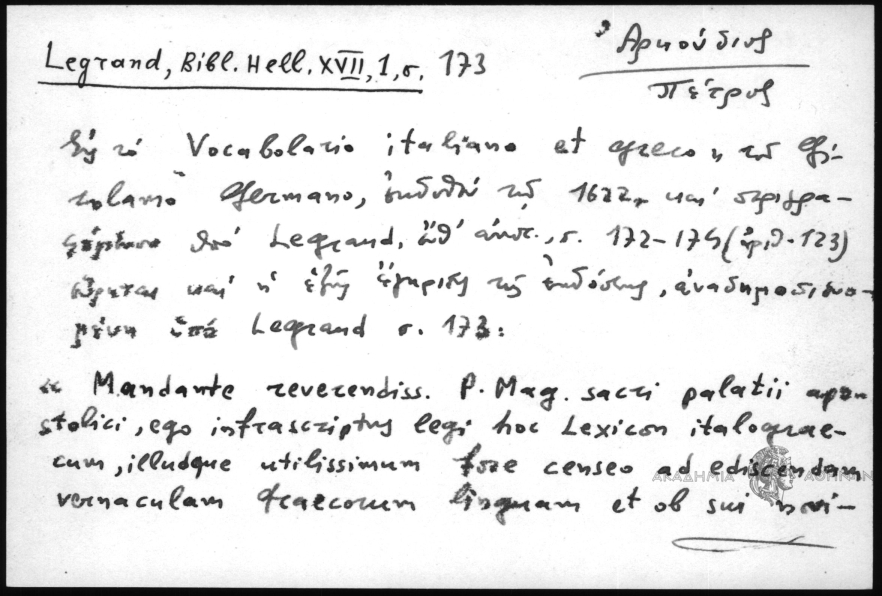 Legrand, Bibl. Hell. XVII, 1, σ. 173
Ἀρκούδιος
Πέτρος
Εἰς τό Vocabolario italiano et greco τοῦ Gi-
rolamo Germano, ἐκδοθέν τῷ 1622, καί περιγρα-
φόμενον ὑπό Legrand, ἔνθ' ἀνωτ., σ. 172-174 (ἀριθ. 123)
φέρεται καί ἡ ἑξῆς ἔγκρισις τῆς ἐκδόσεως, ἀναδημοσιευο-
μένη ὑπό Legrand σ. 173:
« Mandante reverendiss. P. Mag. sacri palatii apo-
stolici, ego infrascriptus legi hoc Lexicon italograe-
cum, illudque utilissimum fore censeo ad ediscendam
vernaculam Graecorum linguam et ob sui novi-
ΑΚΑΔΗΜΙΑ ΑΘΗΝΩΝ